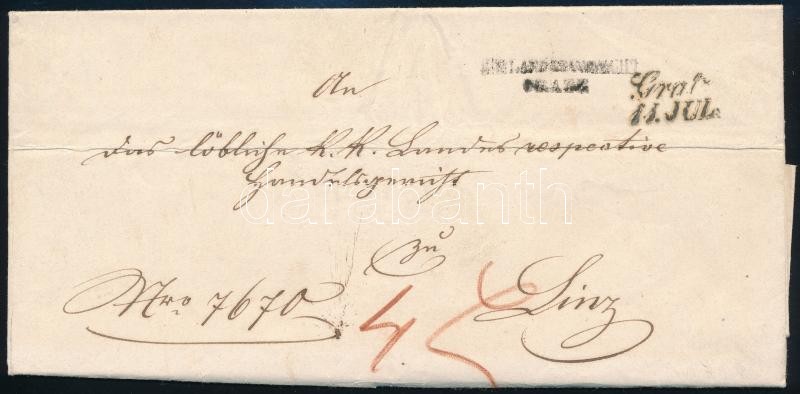 K:K:LANDESGERICHT
GRATZ
Gratz
11. JUL.
An
das löbliche K. K. Landes respective
Handelsgericht
zu
Linz
Nro 7670
darabanth